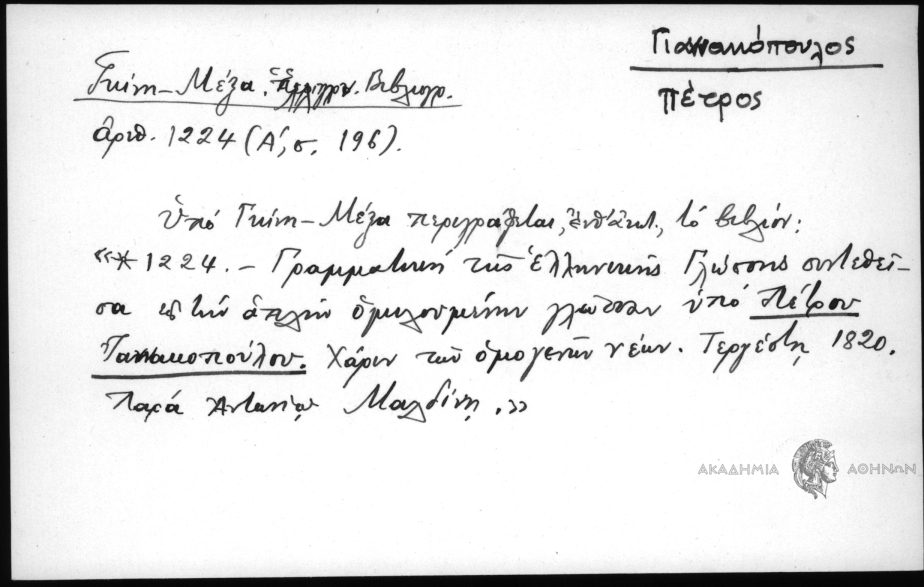 Γιαννακόπουλος
Πέτρος
Γκίνη – Μέξα, Ἑλλην. Βιβλιογρ.
ἀριθ. 1224 (Α΄, σ. 196).
Ὑπό Γκίνη – Μέξα περιγράφεται, ἔνθ᾽ ἀνωτ., τό βιβλίον:
«* 1224. – Γραμματική τῆς Ἑλληνικῆς Γλώσσης συντεθεῖ-
σα εἰς τήν ἁπλῆν ὁμιλουμένην γλῶσσαν ὑπό Πέτρου
Γιαννακοπούλου. Χάριν τῶν ὁμογενῶν νέων. Τεργέστη 1820.
Παρά Ἀντωνίῳ Μαλδίνη.»
ΑΚΑΔΗΜΙΑ ΑΘΗΝΩΝ